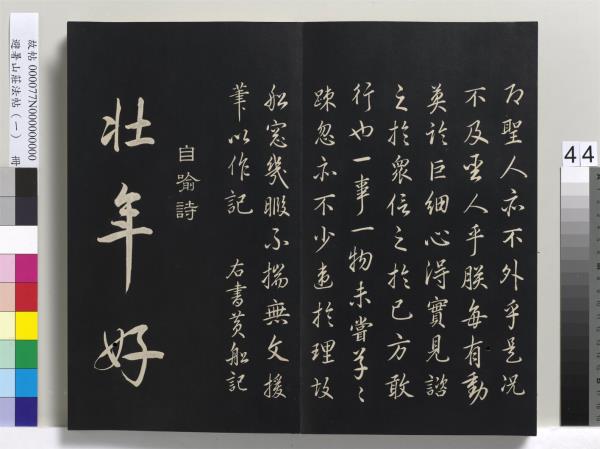 44
乃聖人亦不外乎是况
不及聖人乎朕每有動
莫論巨細心得實見諮
之於衆信之於己方敢
行也一事一物未嘗草〻
踈忽亦不少違於理故
船窓幾暇不揣無文援
筆以作記 右書黄船記
自喻詩
壯年好
故帖 000077N000000000 冊
避暑山莊法帖（一）